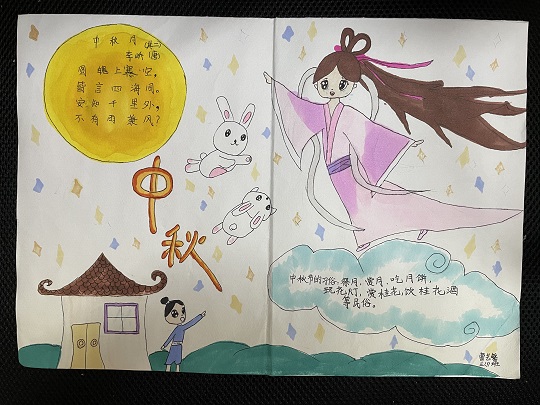 中秋月(其二)
李峤(唐)
圆魄上寒空,
皆言四海同。
安知千里外,
不有雨兼风?
中秋
中秋节的习俗:祭月、赏月、吃月饼、
玩花灯、赏桂花、饮桂花酒
等民俗。